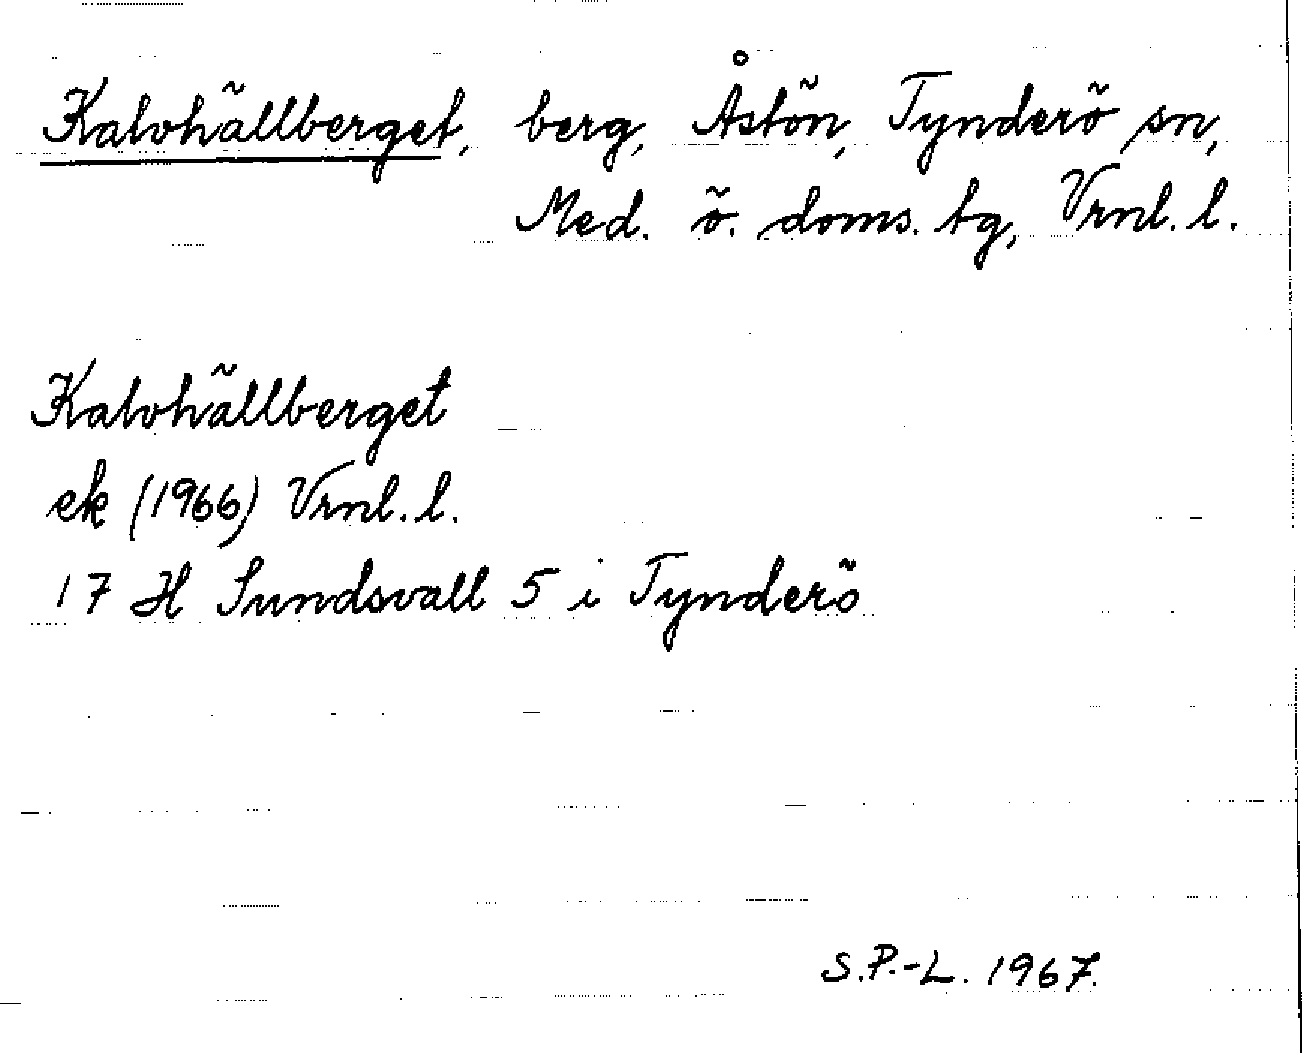 Kalvhällberget, berg, Åstön, Tynderö sn,
Med. ö. doms. tg, Vrnl. l.
Kalvhällberget
ek (1966) Vrnl. l.
17 H Sundsvall 5 i Tynderö
S.P.-L. 1967.